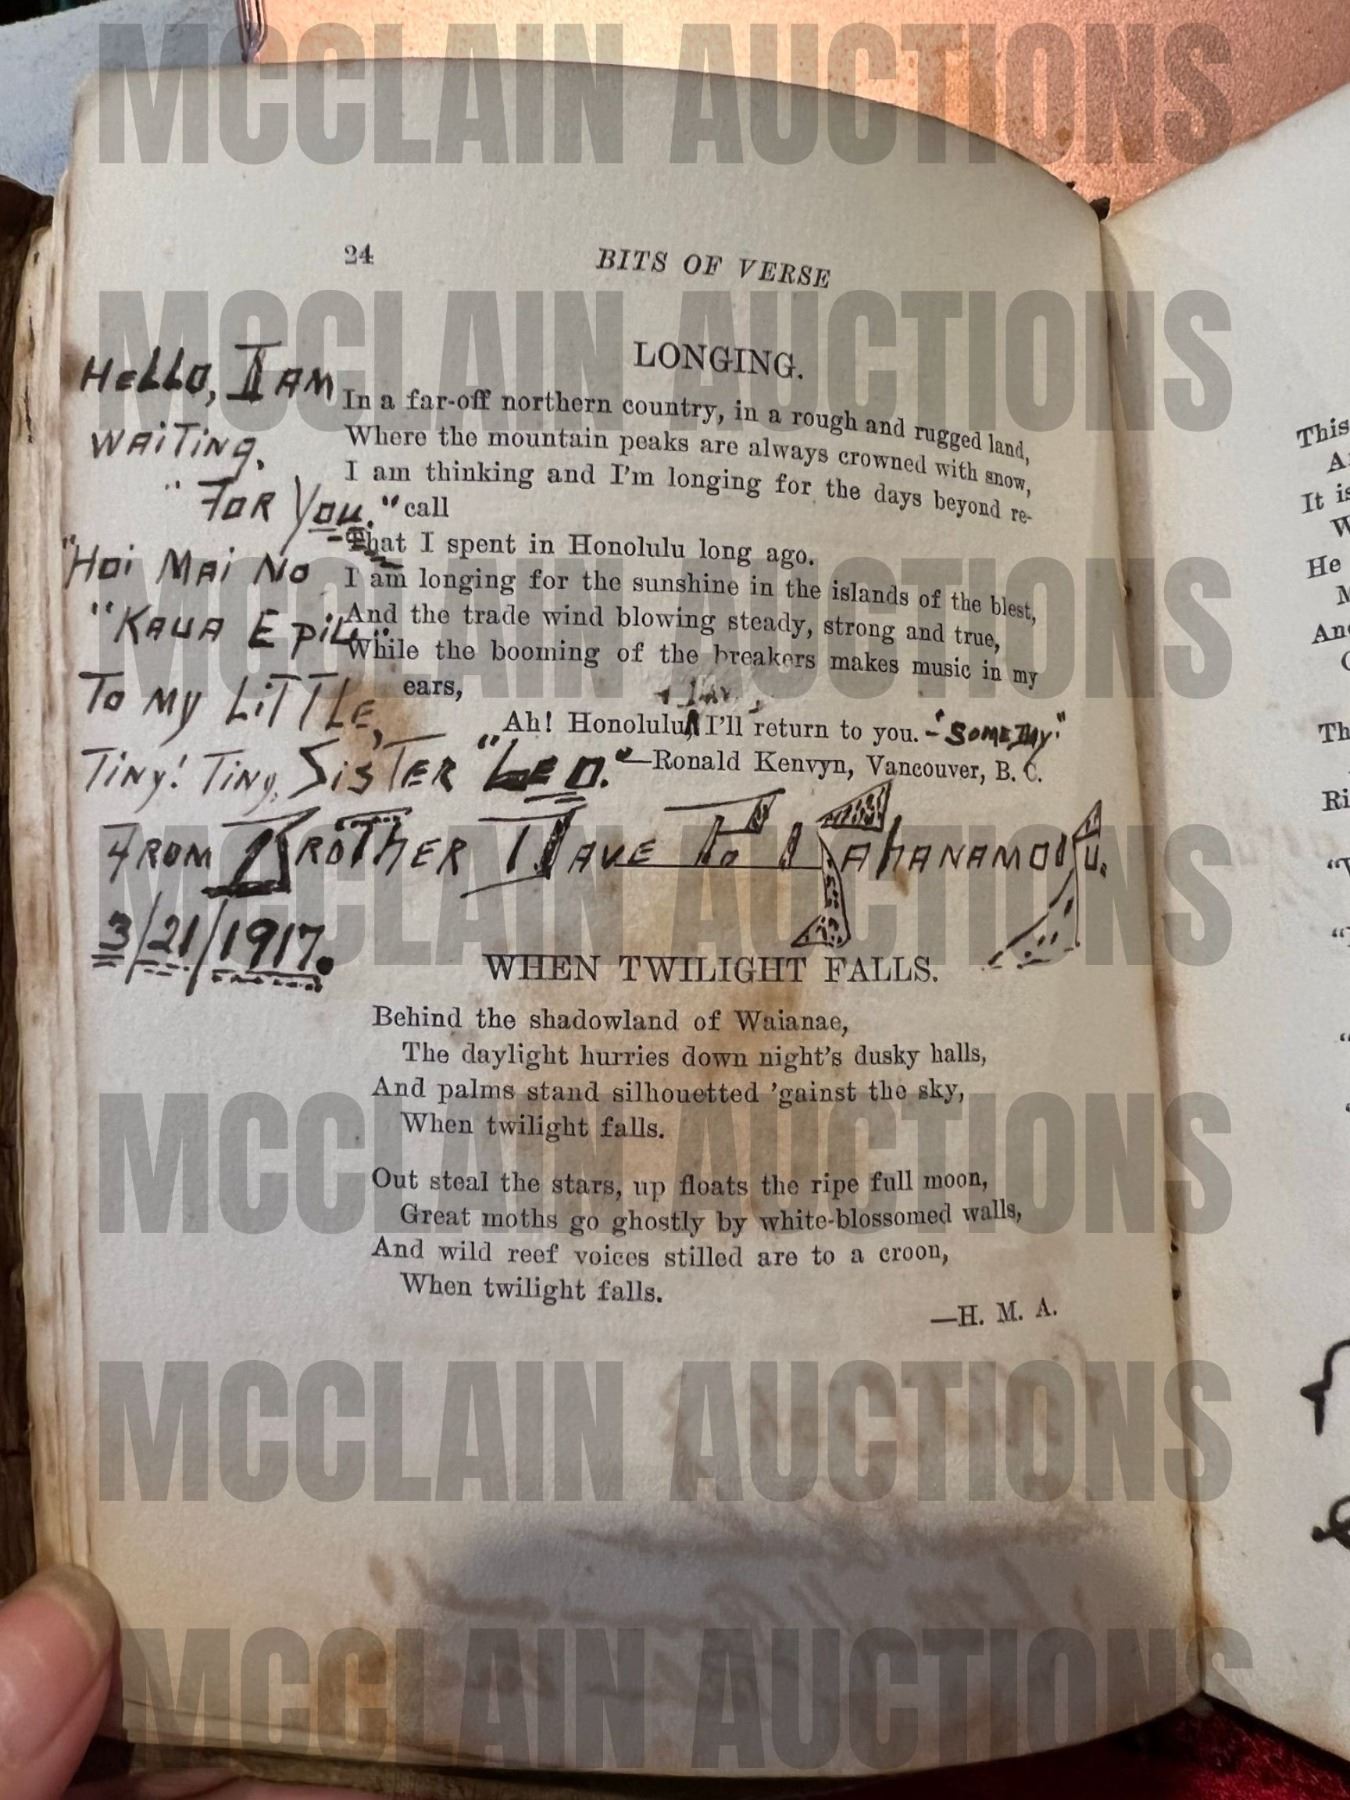 MCCLAIN AUCTIONS
24 BITS OF VERSE
MCCLAIN AUCTIONS
LONGING.
HELLO, I AM
WAITING.
"FOR YOU."
"HOI MAI NO
"KAUA E PILI"
TO MY LITTLE,
TINY! TINY, SISTER "LEO."
FROM BROTHER DAVE P. KAHANAMOKU.
3/21/1917.
In a far-off northern country, in a rough and rugged land,
Where the mountain peaks are always crowned with snow,
I am thinking and I'm longing for the days beyond re-
call
That I spent in Honolulu long ago.
I am longing for the sunshine in the islands of the blest,
And the trade wind blowing steady, strong and true,
While the booming of the breakers makes music in my
ears,
Ah! Honolulu, I'll return to you. - "SOMEDAY"
—Ronald Kenvyn, Vancouver, B. C.
MCCLAIN AUCTIONS
MCCLAIN AUCTIONS
WHEN TWILIGHT FALLS.
Behind the shadowland of Waianae,
The daylight hurries down night's dusky halls,
And palms stand silhouetted 'gainst the sky,
When twilight falls.
MCCLAIN AUCTIONS
Out steal the stars, up floats the ripe full moon,
Great moths go ghostly by white-blossomed walls,
And wild reef voices stilled are to a croon,
When twilight falls.
—H. M. A.
MCCLAIN AUCTIONS
MCCLAIN AUCTIONS
This
It is
He
And
Th
Ri